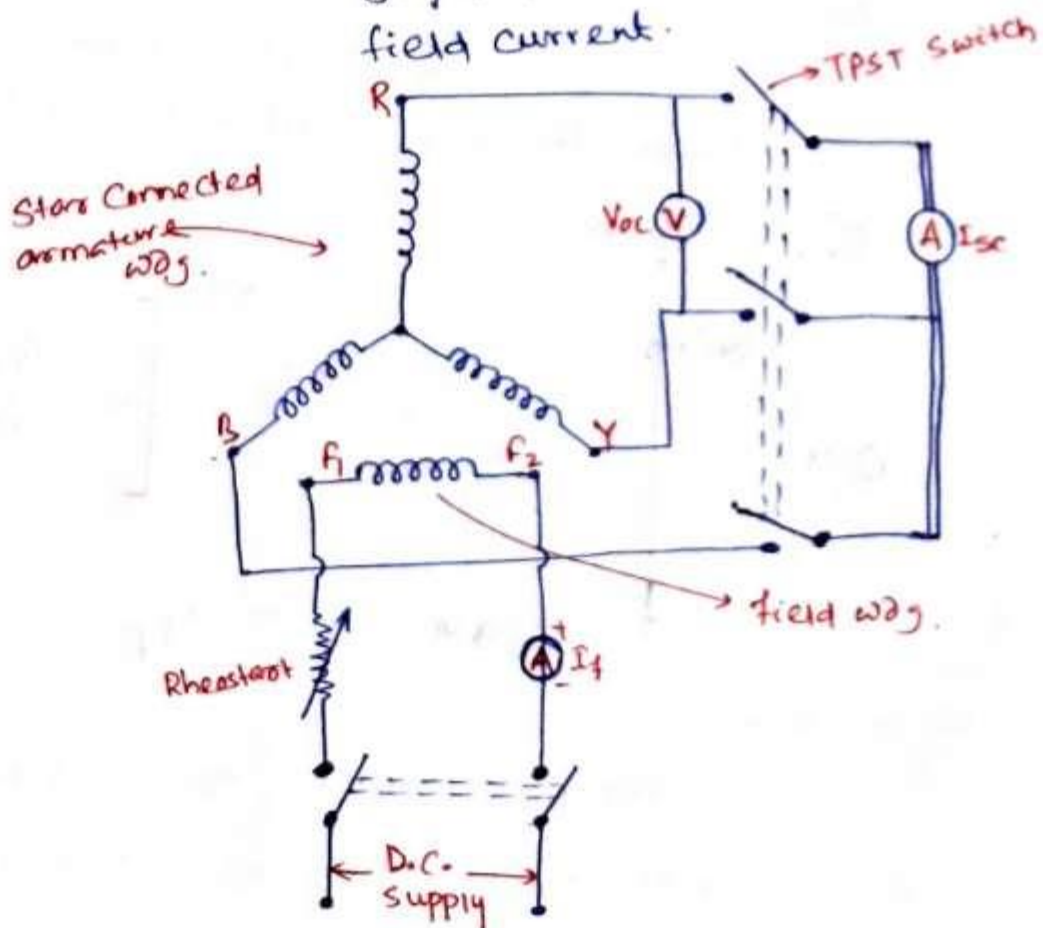 field current.
TPST Switch
R
Star Connected
armature
wdg.
Voc
V
A
Isc
B
Y
F1
F2
field wdg.
Rheostart
+
A
If
-
D.C.
supply